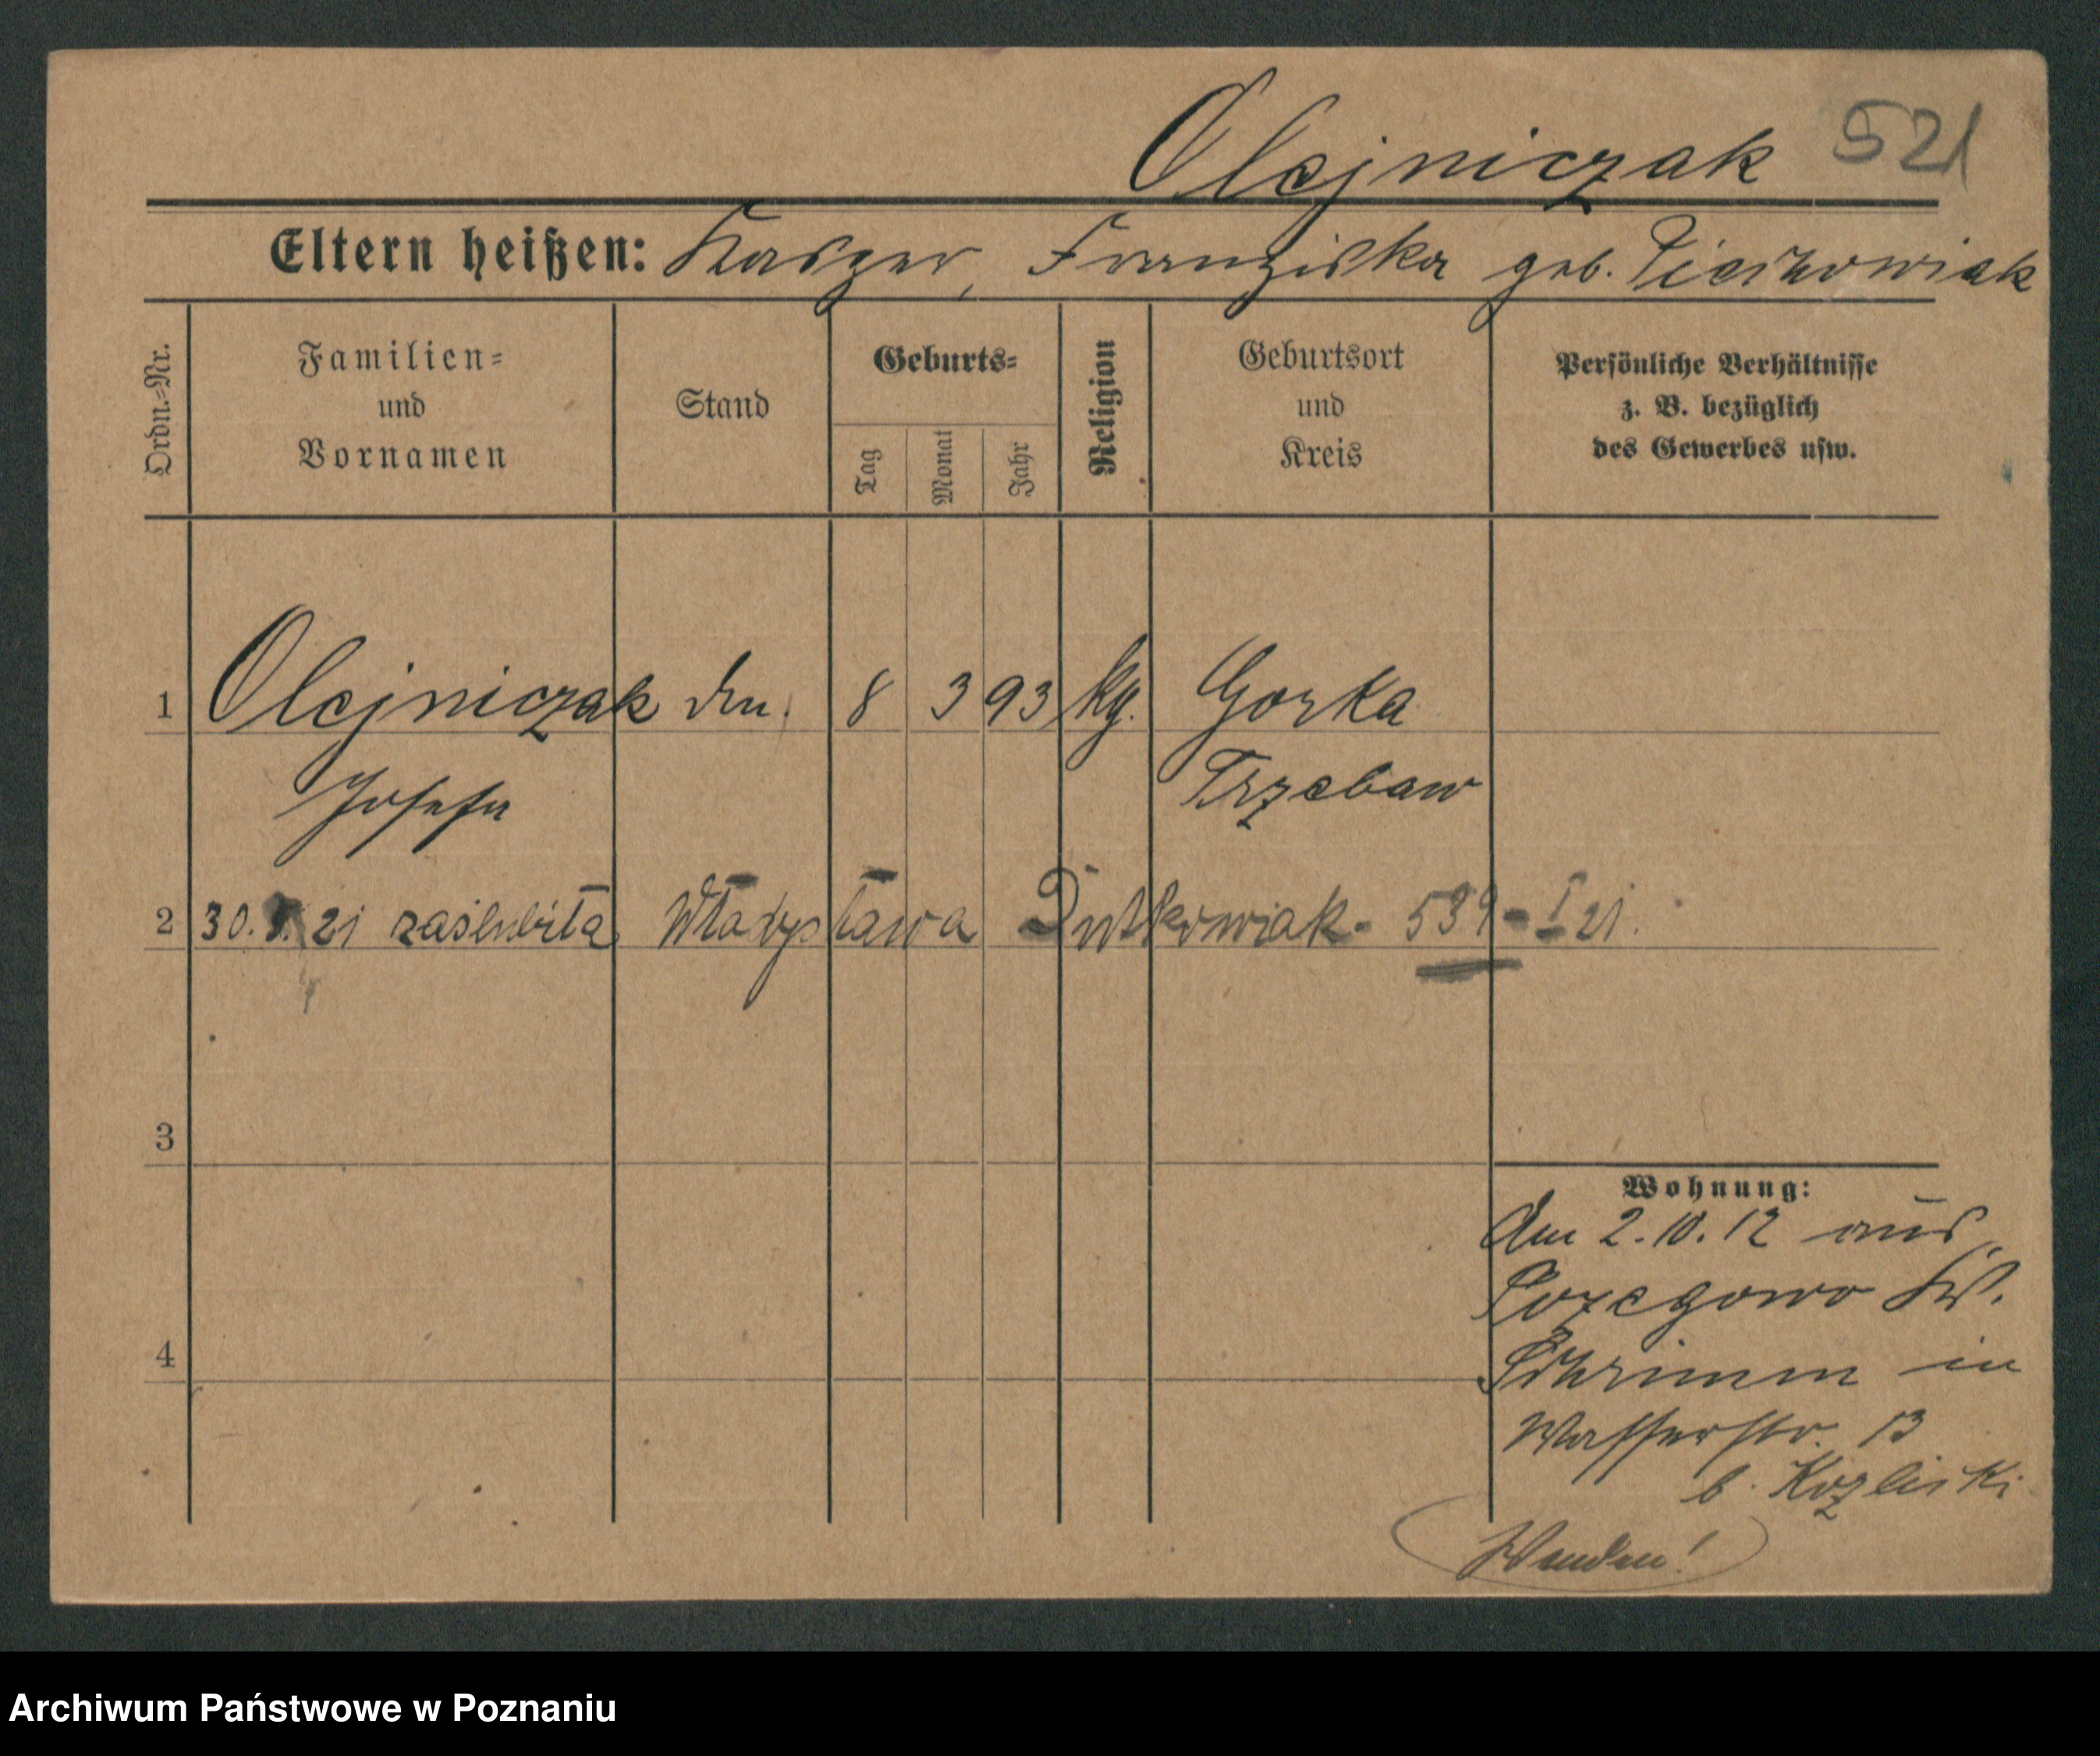 Olejniczak 521
Eltern heißen: Kasper, Franziska geb. Piechowiak
Ordn.=Nr.
Familien=
und
Vornamen
Stand
Geburts=
Tag
Monat
Jahr
Religion
Geburtsort
und
Kreis
Persönliche Verhältnisse
z. B. bezüglich
des Gewerbes usw.
1 Olejniczak 8 3 93 kg. Gorka
Josefa
Trzebaw
2 30. 21 zaślubiła Władysława Dutkowiak - 539 - I 21.
3
4
Wohnung:
Am 2.10.12 aus
Pozegowo Kr.
Schrimm in
Wasserstr. 13
b. Kozlicki
Wenden!
Archiwum Państwowe w Poznaniu